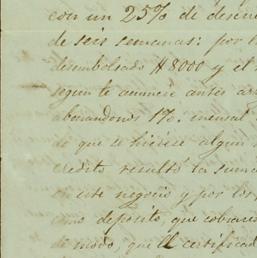 con un 25% de descue
de seis semanas: por l
desembolsado $8000 y el
segun te anuncié antes ar
abonandonos 1%. mensual
de que se hiciese algun
credito resultó la suma
en este negocio y por los
como deposito, que cobrare
de modo, que el certificad